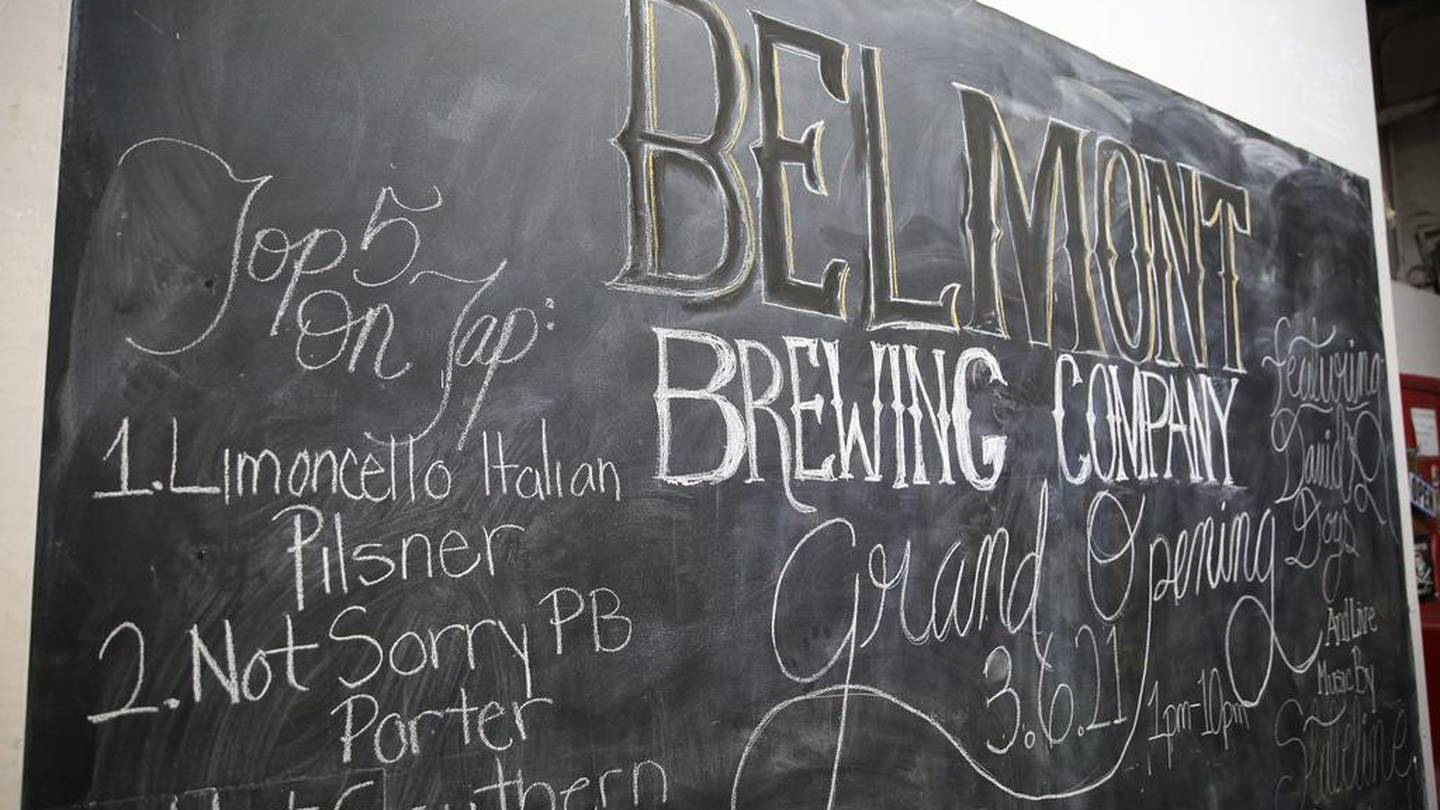 Top 5
On Tap:
1. Limoncello Italian
Pilsner
2. Not Sorry PB
Porter
Southern
BELMONT
BREWING COMPANY
Grand Opening
3.6.21
1pm-10pm
Featuring
David's
Dogs
And Live
Music By
Stateline
OPEN